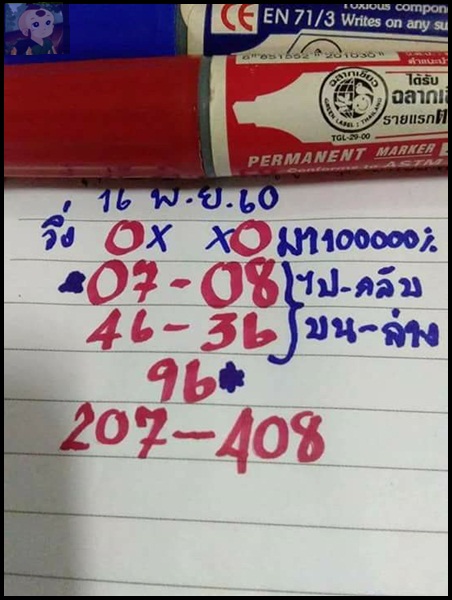 Toxious compon
CE EN 71/3 Writes on any su
8 851552 201030
ฉลากเขียว
GREEN LABEL : THAILAND
TGL-29-00
ได้รับ
ฉลากเขี
รายแรก
PERMANENT MARKER
Conforms to ASTM
16 พ.ย.60
0x x0 มา100000%
*07-08 ไป-กลับ
46-36 บน-ล่าง
96*
207-408